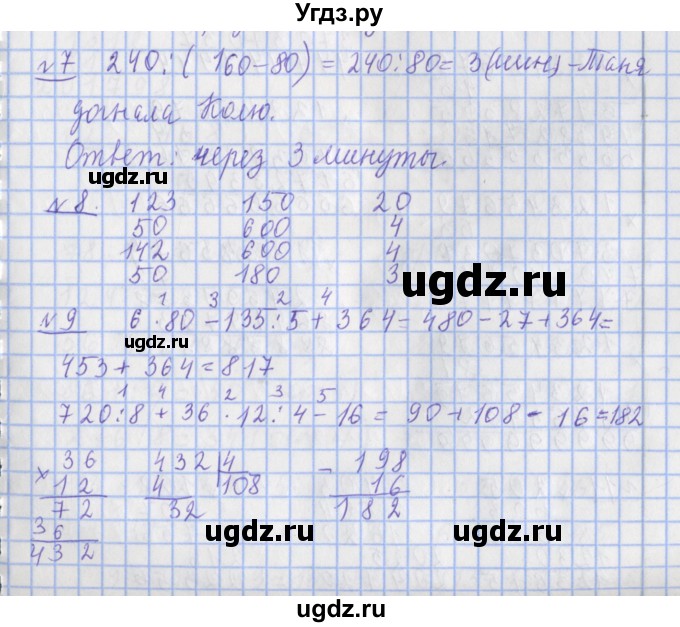 Угдз.ру
№7 240:( 160-80) = 240:80= 3(мин)-Таня
догнала Колю.
Ответ: через 3 минуты.
ugdz.ru
№8. 123 150 20
50 600 4
142 600 4
50 180 3
ugdz.ru
1 3 2 4
№9 6·80-135:5+364=480-27+364=
ugdz.ru
453+364=817
1 4 2 3 5
720:8+36·12:4-16= 90+108-16=182
36 432 4 198
× 12 4 108 - 16
72 32 182
36
432
ugdz.ru ugdz.ru
ugdz.ru